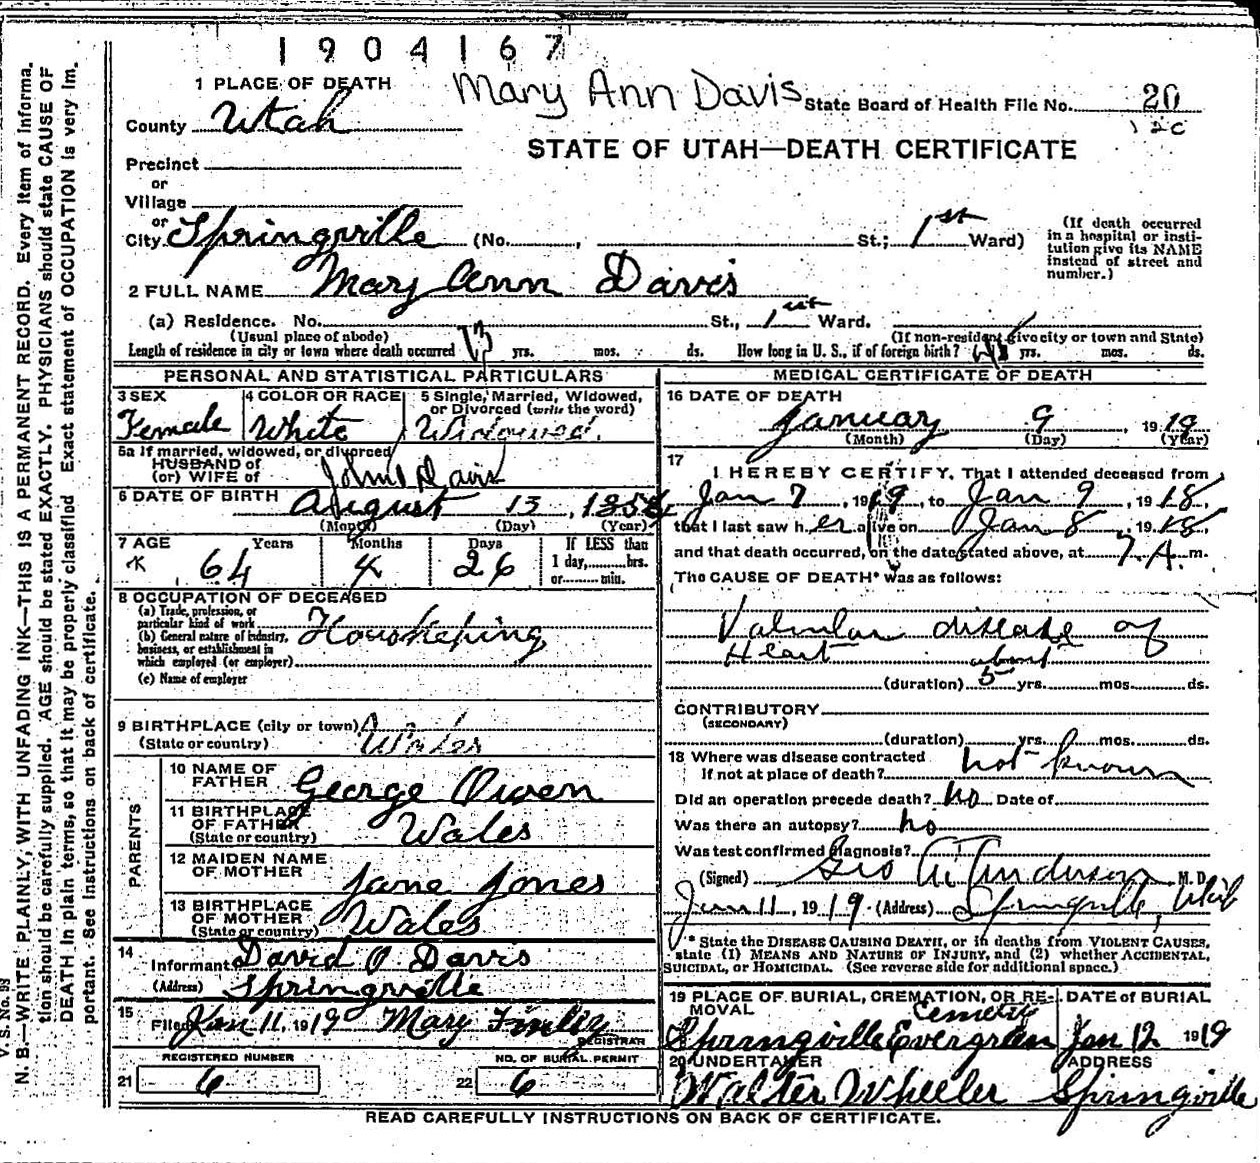 1904167
1 PLACE OF DEATH
Mary Ann Davis
State Board of Health File No. 20
12C
County Utah
STATE OF UTAH—DEATH CERTIFICATE
Precinct
or
Village
or
City Springville (No. , St.; 1st Ward)
(If death occurred in a hospital or insti-
tution give its NAME instead of street and number.)
2 FULL NAME Mary Ann Davis
(a) Residence. No. St., 1st Ward.
(Usual place of abode)
(If non-resident give city or town and State)
Length of residence in city or town where death occurred yrs. mos. ds. How long in U. S., if of foreign birth? yrs. mos. ds.
PERSONAL AND STATISTICAL PARTICULARS
3 SEX
Female
4 COLOR OR RACE
White
5 Single, Married, Widowed,
or Divorced (write the word)
Widowed.
5a If married, widowed, or divorced
HUSBAND of
(or) WIFE of John Davis
6 DATE OF BIRTH August 13, 1854
(Month) (Day) (Year)
7 AGE Years Months Days
64 4 26
If LESS than
1 day, hrs.
or min.
8 OCCUPATION OF DECEASED
(a) Trade, profession, or
particular kind of work Housekeeping
(b) General nature of industry,
business, or establishment in
which employed (or employer)
(c) Name of employer
9 BIRTHPLACE (city or town)
(State or country) Wales
PARENTS
10 NAME OF
FATHER George Owen
11 BIRTHPLACE
OF FATHER
(State or country) Wales
12 MAIDEN NAME
OF MOTHER Jane Jones
13 BIRTHPLACE
OF MOTHER
(State or country) Wales
14
Informant David O. Davis
(Address) Springville
15
Filed Jan 11, 1919 Mary
REGISTRAR
REGISTERED NUMBER
21 6
NO. OF BURIAL PERMIT
22 6
MEDICAL CERTIFICATE OF DEATH
16 DATE OF DEATH
January 9 1919
(Month) (Day) (Year)
17
I HEREBY CERTIFY, That I attended deceased from
Jan 7, 1919, to Jan 9, 1918,
that I last saw her alive on Jan 8, 1918,
and that death occurred, on the date stated above, at 7 A. m.
The CAUSE OF DEATH* was as follows:
Valvular disease of
Heart about
(duration) 5 yrs. mos. ds.
CONTRIBUTORY
(SECONDARY)
(duration) yrs. mos. ds.
18 Where was disease contracted
If not at place of death? not known
Did an operation precede death? no Date of
Was there an autopsy? no
Was test confirmed diagnosis?
(Signed) Geo Anderson M. D.
Jan 11, 1919 (Address) Springville, Utah
* State the DISEASE CAUSING DEATH, or in deaths from VIOLENT CAUSES,
state (1) MEANS AND NATURE OF INJURY, and (2) whether ACCIDENTAL,
SUICIDAL, or HOMICIDAL. (See reverse side for additional space.)
19 PLACE OF BURIAL, CREMATION, OR RE-
MOVAL
Cemetery
Springville Evergreen
DATE of BURIAL
Jan 12 1919
20 UNDERTAKER
Walter Wheeler
ADDRESS
Springville
READ CAREFULLY INSTRUCTIONS ON BACK OF CERTIFICATE.
V. S. No. 93
N. B.—WRITE PLAINLY, WITH UNFADING INK—THIS IS A PERMANENT RECORD. Every item of informa-
tion should be carefully supplied. AGE should be stated EXACTLY. PHYSICIANS should state CAUSE OF
DEATH in plain terms, so that it may be properly classified. Exact statement of OCCUPATION is very im-
portant. See instructions on back of certificate.